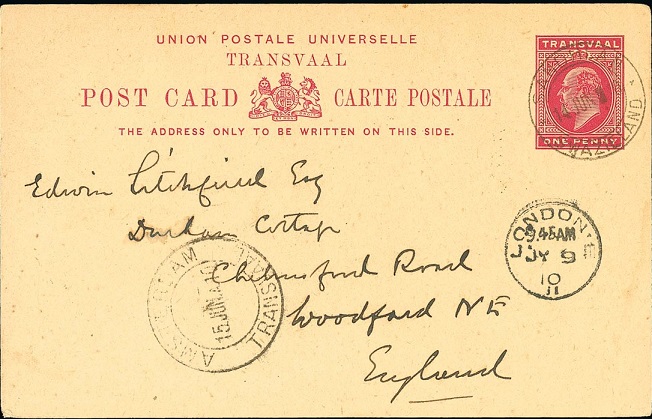 UNION POSTALE UNIVERSELLE
TRANSVAAL
POST CARD CARTE POSTALE
THE ADDRESS ONLY TO BE WRITTEN ON THIS SIDE.
TRANSVAAL
ONE PENNY
SWAZILAND
Edwin Litchfield Esq
Durham Cottage
Chelmsford Road
Woodford NE
England
LONDON E
9.45AM
JY 9
10
11
TRANSVAAL
15 JUN